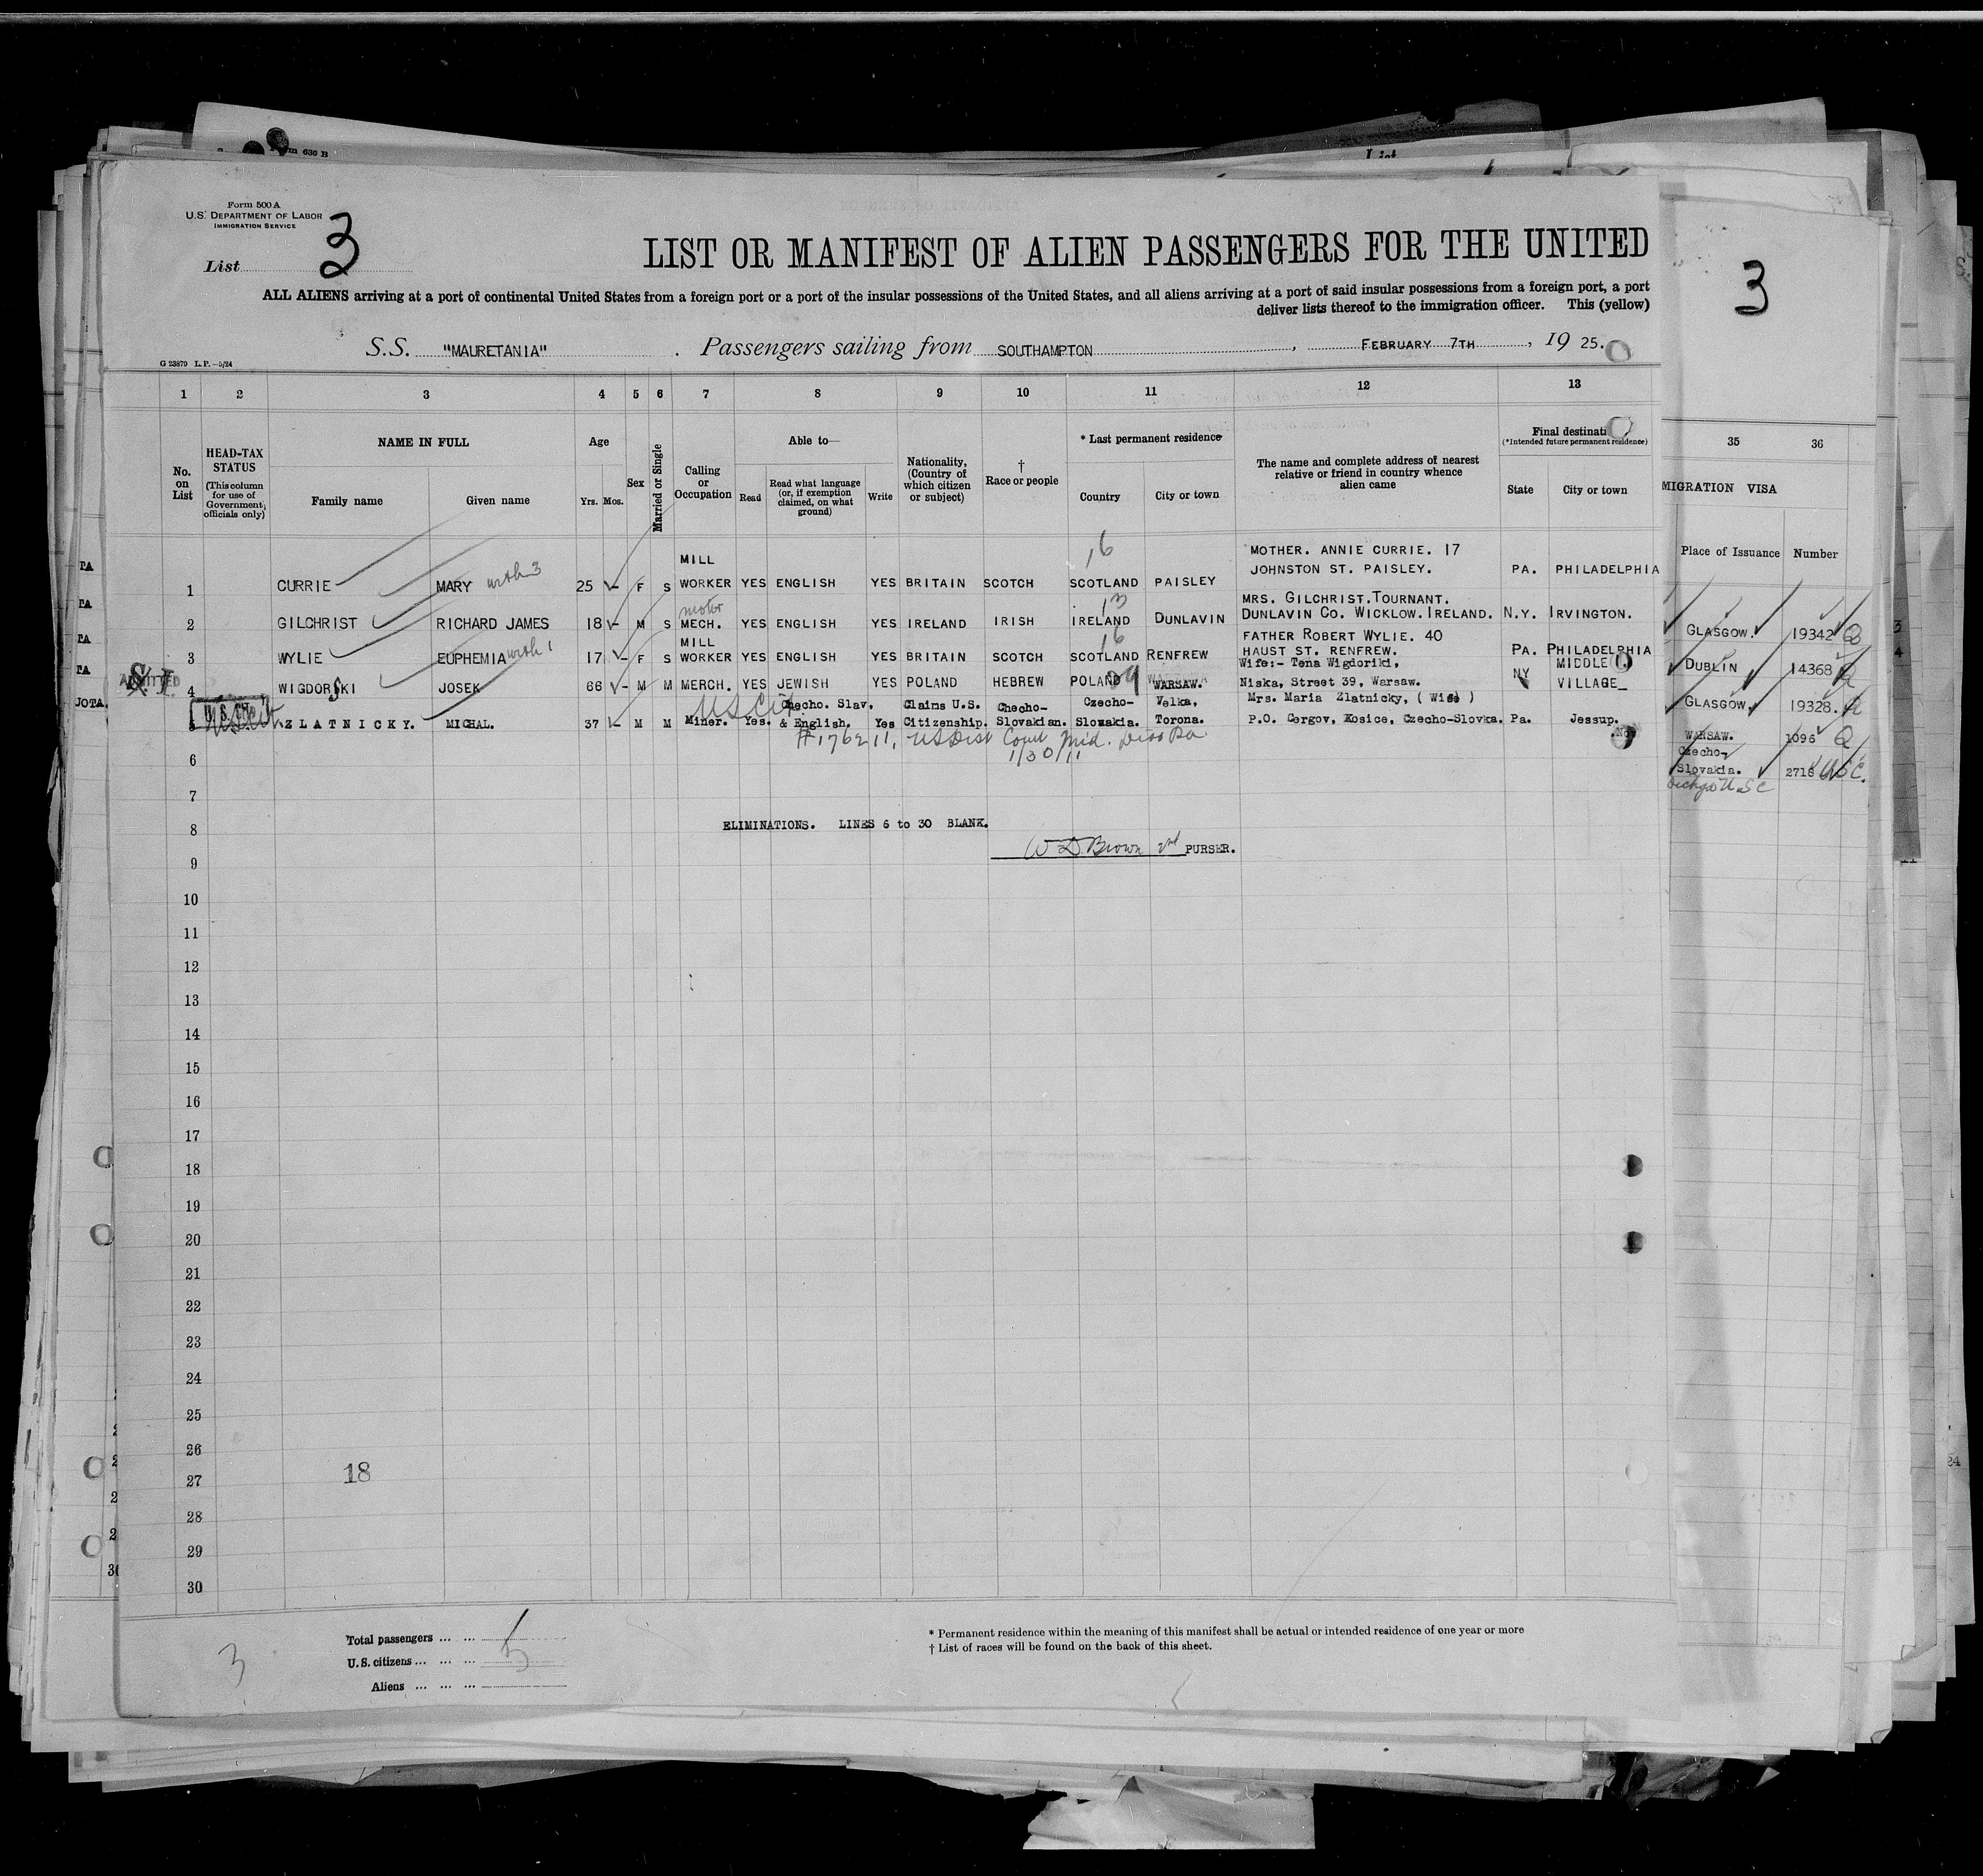 Form 500 A
U.S. DEPARTMENT OF LABOR
IMMIGRATION SERVICE
List 3
LIST OR MANIFEST OF ALIEN PASSENGERS FOR THE UNITED
3
ALL ALIENS arriving at a port of continental United States from a foreign port or a port of the insular possessions of the United States, and all aliens arriving at a port of said insular possessions from a foreign port, a port
deliver lists thereof to the immigration officer. This (yellow)
S.S. "MAURETANIA" . Passengers sailing from SOUTHAMPTON , FEBRUARY 7TH , 19 25.
G 23879 L.P.—5/24
1 2 3 4 5 6 7 8 9 10 11 12 13
35 36
No. on List
HEAD-TAX STATUS (This column for use of Government officials only)
NAME IN FULL
Family name Given name
Age
Yrs. Mos.
Sex
Married or Single
Calling or Occupation
Able to—
Read
Read what language (or, if exemption claimed, on what ground)
Write
Nationality, (Country of which citizen or subject)
† Race or people
* Last permanent residence
Country City or town
The name and complete address of nearest relative or friend in country whence alien came
Final destinati
(*Intended future permanent residence)
State City or town
MIGRATION VISA
Place of Issuance Number
1 CURRIE MARY with 3 25 F S MILL WORKER YES ENGLISH YES BRITAIN SCOTCH 16 SCOTLAND PAISLEY MOTHER. ANNIE CURRIE. 17 JOHNSTON ST. PAISLEY. PA. PHILADELPHIA
GLASGOW. 19342 Q
2 GILCHRIST RICHARD JAMES 18 M S motor MECH. YES ENGLISH YES IRELAND IRISH 13 IRELAND DUNLAVIN MRS. GILCHRIST. TOURNANT. DUNLAVIN CO. WICKLOW. IRELAND. N.Y. IRVINGTON.
DUBLIN 14368 Q
3 WYLIE EUPHEMIA with 1 17 F S MILL WORKER YES ENGLISH YES BRITAIN SCOTCH 16 SCOTLAND RENFREW FATHER ROBERT WYLIE. 40 HAUST ST. RENFREW. PA. PHILADELPHIA
GLASGOW. 19328. Q
ADMITTED S.I. 4 WIGDORSKI JOSEK 66 M M MERCH. YES JEWISH YES POLAND HEBREW POLAND 09 WARSAW. Wife:- Tena Wigdoriki, Niska, Street 39, Warsaw. NY MIDDLE VILLAGE
WARSAW. 1096 Q
5 ZLATNICKY. MICHAL. 37 M M Miner. Yes. Checho. Slav, & English. Yes Claims U.S. Citizenship. Checho-Slovakian. Czecho-Slovakia. Velka, Torona. Mrs. Maria Zlatnicky, ( Wife ) P.O. Gergov, Kosice, Czecho-Slovka. Pa. Jessup.
Czecho-Slovakia. 2716 USC.
US Cit.
#176211, US Dist Court Mid. Dist Pa
1/30/11
6
7
8 ELIMINATIONS. LINES 6 to 30 BLANK.
W D. Brown 2nd PURSER.
9
10
11
12
13
14
15
16
17
18
19
20
21
22
23
24
25
26
27 18
28
29
30
Total passengers ... ... 5
U.S. citizens ... ... ...
Aliens ... ... ...
3
* Permanent residence within the meaning of this manifest shall be actual or intended residence of one year or more
† List of races will be found on the back of this sheet.